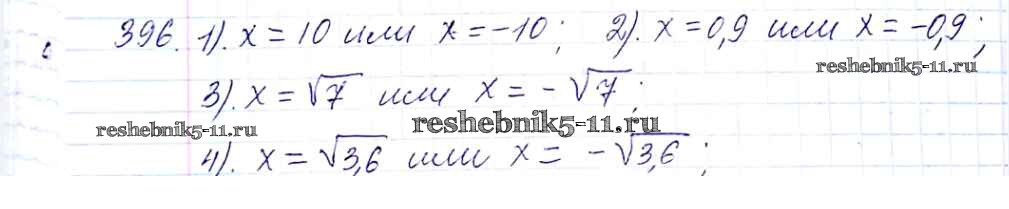 396. 1). x = 10 или x = -10; 2). x = 0,9 или x = -0,9;
reshebnik5-11.ru
3). x = √7 или x = - √7;
reshebnik5-11.ru reshebnik5-11.ru
4). x = √3,6 или x = - √3,6;